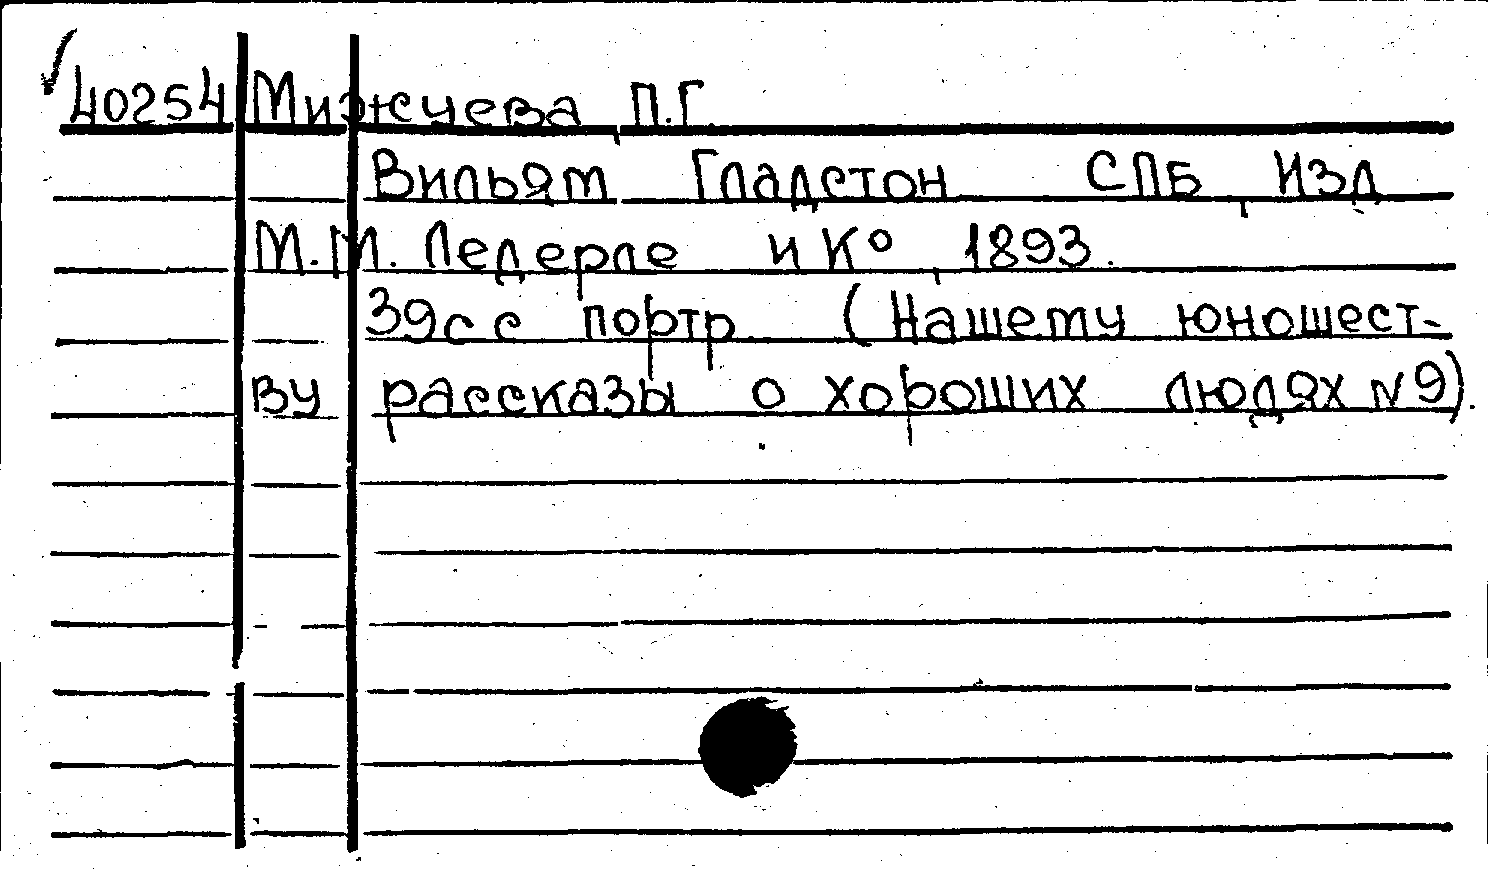 40254 Мижуева П.Г.
Вильям Гладстон СПБ, Изд
М.М. Ледерле и К°, 1893.
39с с портр (Нашему юношест-
ву рассказы о хороших людях N9).